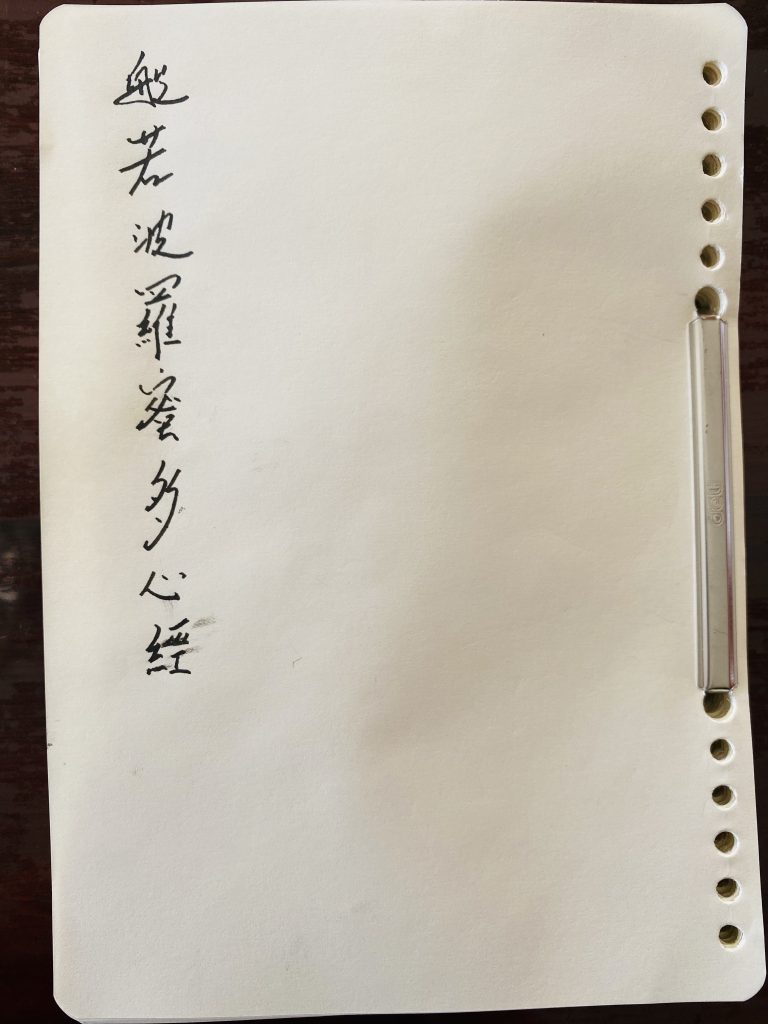 般若波羅蜜多心經
deli